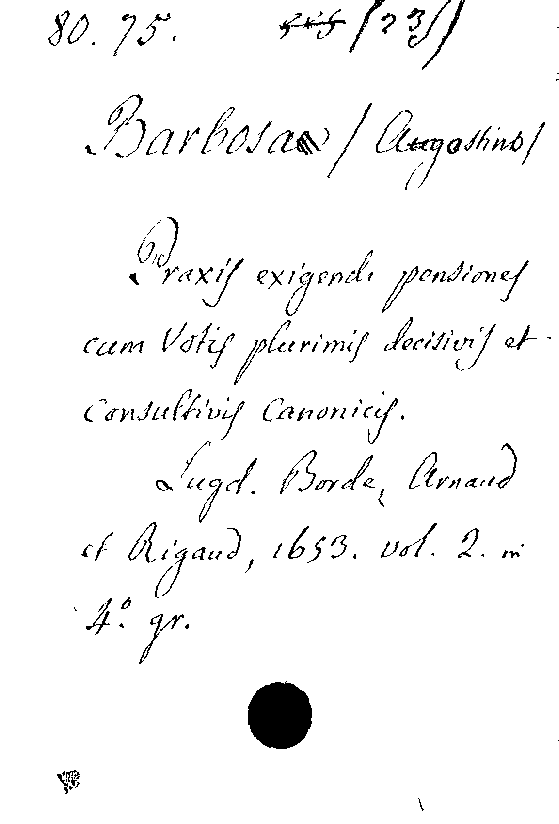 80. 75. (23)
Barbosa / Augostino /
Praxis exigendi pensiones
cum Votis plurimis decisivis et
Consultivis Canonicis.
Lugd. Borde, Arnaud
et Rigaud, 1653. vol. 2. in
4.° gr.